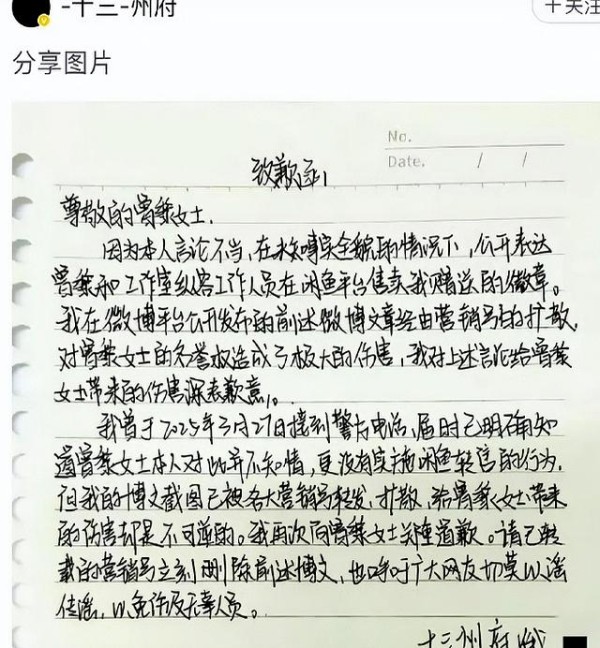 -十三-州府
十关注
分享图片
No.
Date. / /
致歉函
尊敬的曾黎女士.
因为本人言论不当,在未知事实全貌的情况下,公开表达
曾黎和工作室纵容工作人员在闲鱼平台售卖我赠送的徽章。
我在微博平台公开发布的前述微博文章经由营销号的扩散,
对曾黎女士的名誉权造成了极大的伤害,我对上述言论给曾黎
女士带来的伤害深表歉意。
我曾于2025年3月27日接到警方电话,届时已明确知
道曾黎女士本人对此并不知情,更没有实施闲鱼转售的行为.
但我的博文截图已被各大营销号转发、扩散,给曾黎女士带来
的伤害却是不可逆的。我再次向曾黎女士郑重道歉。请已转
载的营销号立刻删除前述博文,也呼吁广大网友切莫以谣
传谣,以免伤及无辜人员。
十三州府